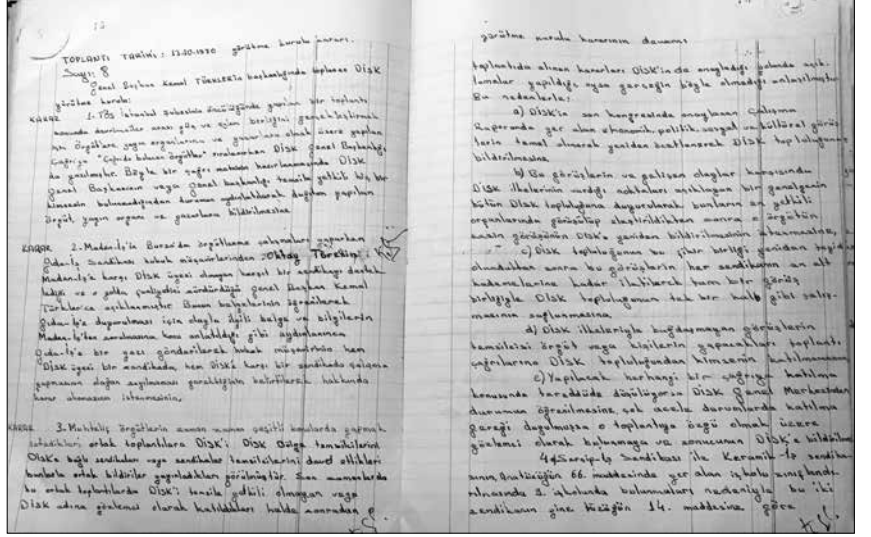 13
TOPLANTI TARİHİ : 13.10.1970 yürütme kurulu kararı.
Sayı: 8
Genel Başkan Kemal TÜRKLER'in başkanlığında toplanan DİSK
yürütme kurulu:
KARAR 1- TÖS İstanbul Şubesinin öncülüğünde yapılan bir toplantı
sonunda devrimciler arası güç ve eylem birliğini gerçekleştirmek
için örgütlere, yayın organlarına ve yazarlara olmak üzere yapılan
çağrıya "Çağrıda bulunan örgütler" sıralanırken DİSK Genel Başkanlığı
da yazılmıştır. Böyle bir çağrı metninin hazırlanmasında DİSK
Genel Başkanının veya genel başkanlığı temsile yetkili hiç bir
kimsenin bulunmadığından durumun aydınlatılarak dağıtım yapılan
örgüt, yayın organı ve yazarlara bildirilmesine.
KARAR 2- Maden-İş'in Bursa'da örgütlenme çalışmaları yaparken
Gıda-İş Sendikası hukuk müşavirlerinden Oktay
Maden-İş'e karşı DİSK üyesi olmayan karşıt bir sendikayı destek
lediği ve o yolda faaliyetini sürdürdüğü Genel Başkan Kemal
Türkler'ce açıklanmıştır. Bunun belgelerinin öğrenilerek
Gıda-İş'e duyurulması için olayla ilgili belge ve bilgilerin
Maden-İş'ten sorulmasına konu anlatıldığı gibi aydınlanınca
Gıda-İş'e bir yazı gönderilerek hukuk müşavirinin hem
DİSK üyesi bir sendikada, hem DİSK'e karşı bir sendikada çalışma
yapmasının olağan sayılmaması gerektiğinin belirtilerek hakkında
karar alınmasının istenmesine,
KARAR 3- Muhtelif örgütlerin zaman zaman çeşitli konularda yapmak
istedikleri ortak toplantılara DİSK'i, DİSK Bölge temsilcilerini
DİSK'e bağlı sendikaları veya sendikalar temsilcilerini davet ettikleri
bunlarla ortak bildiriler yayınladıkları görülmüştür. Son zamanlarda
bu ortak toplantılarda DİSK'i temsile yetkili olmayan veya
DİSK adına gözlemci olarak katıldıkları halde sonradan o
yürütme kurulu kararının devamı
toplantıda alınan kararları DİSK'in de onayladığı yolunda açık-
lamalar yapıldığı oysa gerçeğin böyle olmadığı anlaşılmıştır.
Bu nedenlerle;
a) DİSK'in son kongresinde onaylanan Çalışma
Raporunda yer alan ekonomik, politik, sosyal ve kültürel görüş
lerin temel alınarak yeniden özetlenerek DİSK topluluğuna
bildirilmesine
b) Bu görüşlerin ve gelişen olaylar karşısında
DİSK ilkelerinin vardığı noktaları açıklayan bir genelgenin
bütün DİSK topluluğuna duyurularak bunların en yetkili
organlarında görüşülüp eleştirildikten sonra o örgütün
kesin görüşünün DİSK'e yeniden bildirilmesinin istenmesine,
c) DİSK topluluğunun bu fikir birliği yeniden teyid
olunduktan sonra bu görüşlerin her sendikanın en alt
kademelerine kadar iletilerek tam bir görüş
birliğiyle DİSK topluluğunun tek bir halk gibi çalış-
masının sağlanmasına
d) DİSK ilkeleriyle bağdaşmayan görüşlerin
temsilcisi örgüt veya kişilerin yapacakları toplantı
çağrılarına DİSK topluluğundan kimsenin katılmamasına
e) Yapılacak herhangi bir çağrıya katılma
konusunda tereddüde düşülüyorsa DİSK Genel Merkezinden
durumun öğrenilmesine, çok acele durumlarda katılma
gereği duyulmuşsa o toplantıya özgü olmak üzere
gözlemci olarak bulunmaya ve sonucunun DİSK'e bildirilme
4- Serçip-İş Sendikası ile Keramik-İş sendika-
sının, Anatüzüğün 66. maddesinde yer alan işkolu sınıflandı-
rılmasında 9. işkolunda bulunmaları nedeniyle bu iki
sendikanın yine tüzüğün 14. maddesine göre